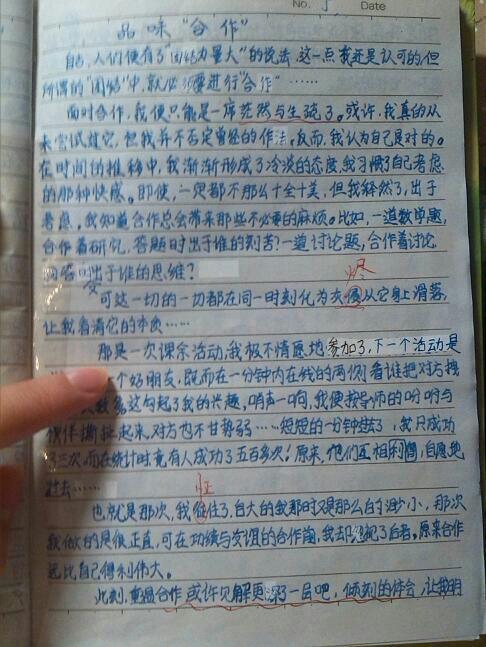 No. 5 Date
品味“合作”
自古,人们便有了“团结力量大”的说法,这一点我还是认可的,但
所谓的“团结”中,就必须要进行“合作”……
面对合作,我便只能是一席茫然与生疏了。或许,我真的从
未尝试过它,但我并不否定曾经的作法。反而,我认为自己是对的。
在时间的推移中,我渐渐形成了冷淡的态度,我习惯了自己考虑
的那种快感。即使,一贯都不那么十全十美,但我释然了,出于
考虑。我知道合作总会带来那些不必要的麻烦。比如,一道数学题,
合作着研究,答题时出于谁的刻苦?一道讨论题,合作着讨论
内容叫出于谁的思维?
烬
可这一切的一切都在同一时刻化为灰 从它身上滑落,
让我看清它的本质……
那是一次课余活动,我极不情愿地参加了,下一个活动是
个好朋友,既而在一分钟内在线的两侧看谁把对方拽
次数多,这勾起了我的兴趣,哨声一响,我便按导师的吩咐与
伙伴撕扯起来,对方也不甘势弱……短短的一分钟结束了,我只成功
了三次,而在统计时,竟有人成功了五百多次!原来,他们互相利用,自愿地
过去……
怔
也就是那次,我 住了,自大的我那时又是那么的渺小,那次
我做的是很正直,可在功绩与友谊的合作间,我却忽视了后者。原来合作
远比自己得利伟大。
此刻,重温合作,或许见解更深了一层吧,倾刻的体会,让我明